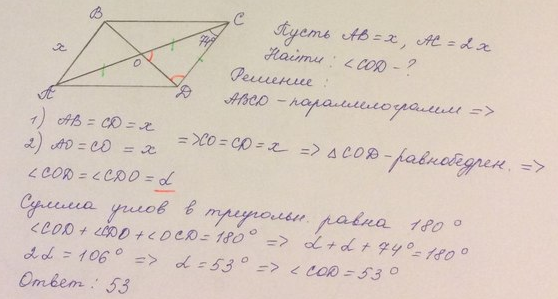 B
C
x
O
74°
A
D
Пусть AB = x, AC = 2x
Найти: ∠COD - ?
Решение:
ABCD - параллелограмм =>
1) AB = CD = x
2) AO = CO = x => CO = CD = x => △COD - равнобедрен. =>
∠COD = ∠CDO = α
Сумма углов в треугольн. равна 180°
∠COD + ∠CDO + ∠OCD = 180° => α + α + 74° = 180°
2α = 106° => α = 53° => ∠COD = 53°
Ответ: 53